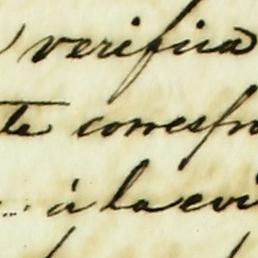 verifica
te corresp
á la evi